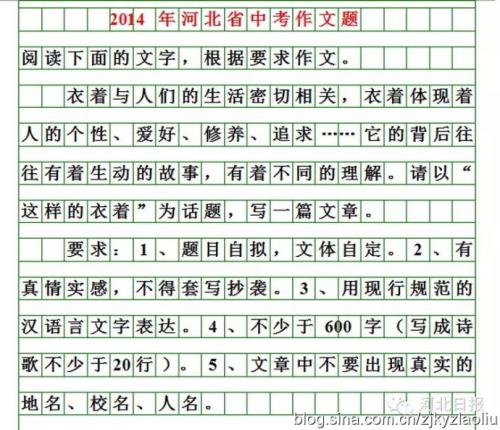 2014 年河北省中考作文题
阅读下面的文字，根据要求作文。
衣着与人们的生活密切相关，衣着体现着
人的个性、爱好、修养、追求……它的背后往
往有着生动的故事，有着不同的理解。请以“
这样的衣着”为话题，写一篇文章。
要求：1、题目自拟，文体自定。2、有
真情实感，不得套写抄袭。3、用现行规范的
汉语言文字表达。4、不少于 600 字（写成诗
歌不少于20行）。5、文章中不要出现真实的
地名、校名、人名。
河北日报
blog.sina.com.cn/zjkyzlaoliu